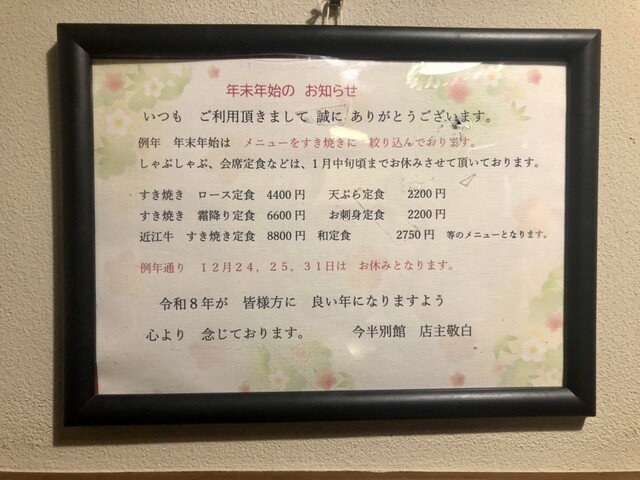 年末年始の お知らせ
いつも ご利用頂きまして 誠に ありがとうございます。
例年 年末年始は メニューをすき焼きに 絞り込んでおります。
しゃぶしゃぶ、会席定食などは、１月中旬頃までお休みさせて頂いております。
すき焼き ロース定食 4400円 天ぷら定食 2200円
すき焼き 霜降り定食 6600円 お刺身定食 2200円
近江牛 すき焼き定食 8800円 和定食 2750円 等のメニューとなります。
例年通り １２月２４，２５，３１日は お休みとなります。
令和８年が 皆様方に 良い年になりますよう
心より 念じております。 今半別館 店主敬白